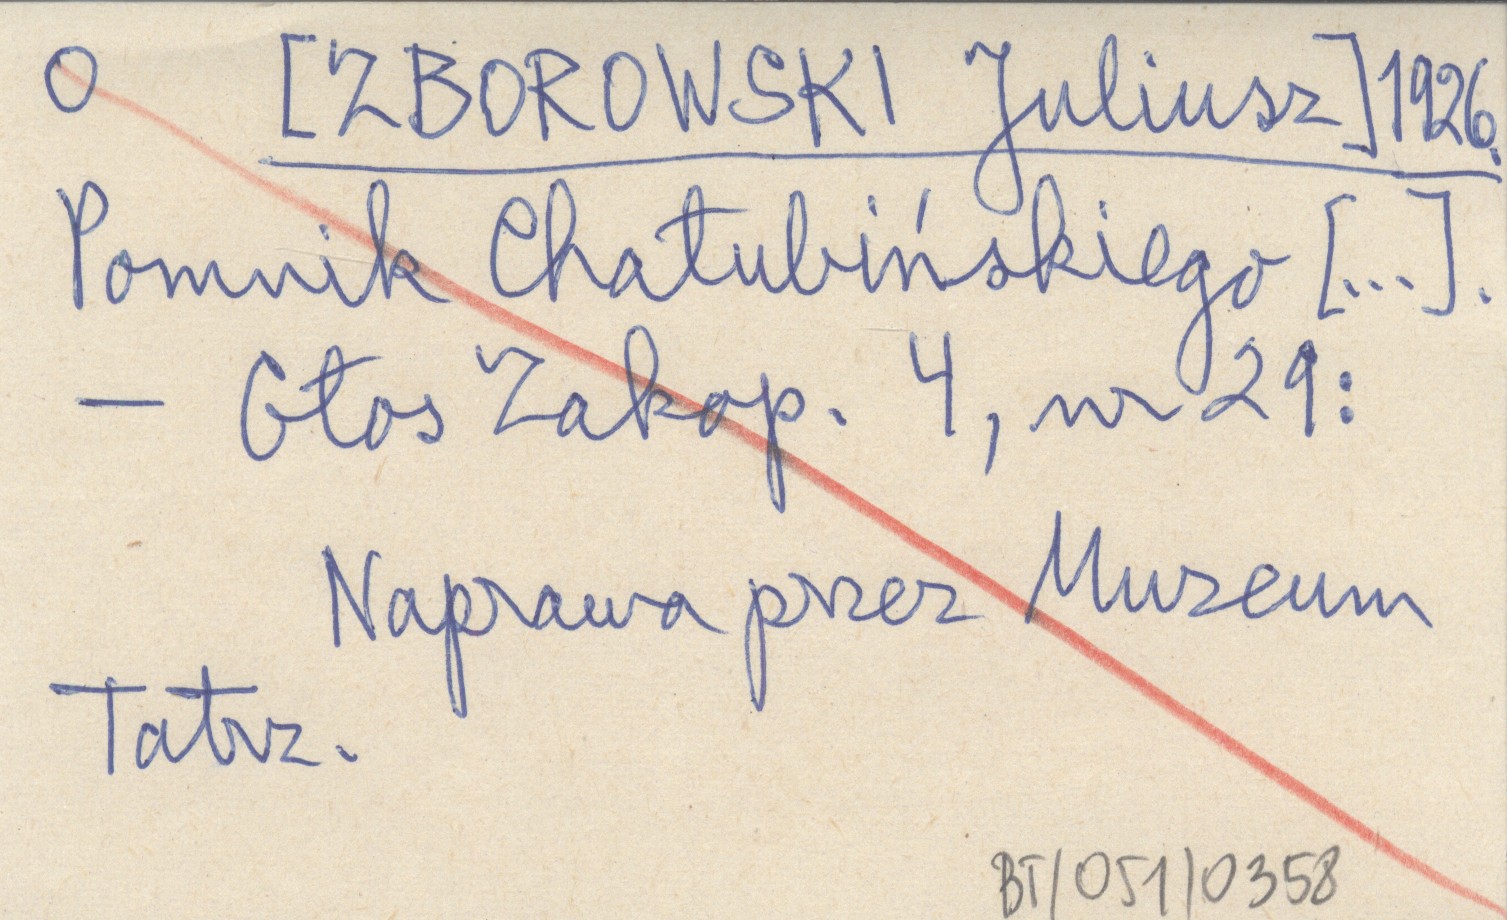 O [ZBOROWSKI Juliusz] 1926.
Pomnik Chałubińskiego [...].
— Głos Zakop. 4, nr 29:
Naprawa przez Muzeum
Tatrz.
BT/051/0358